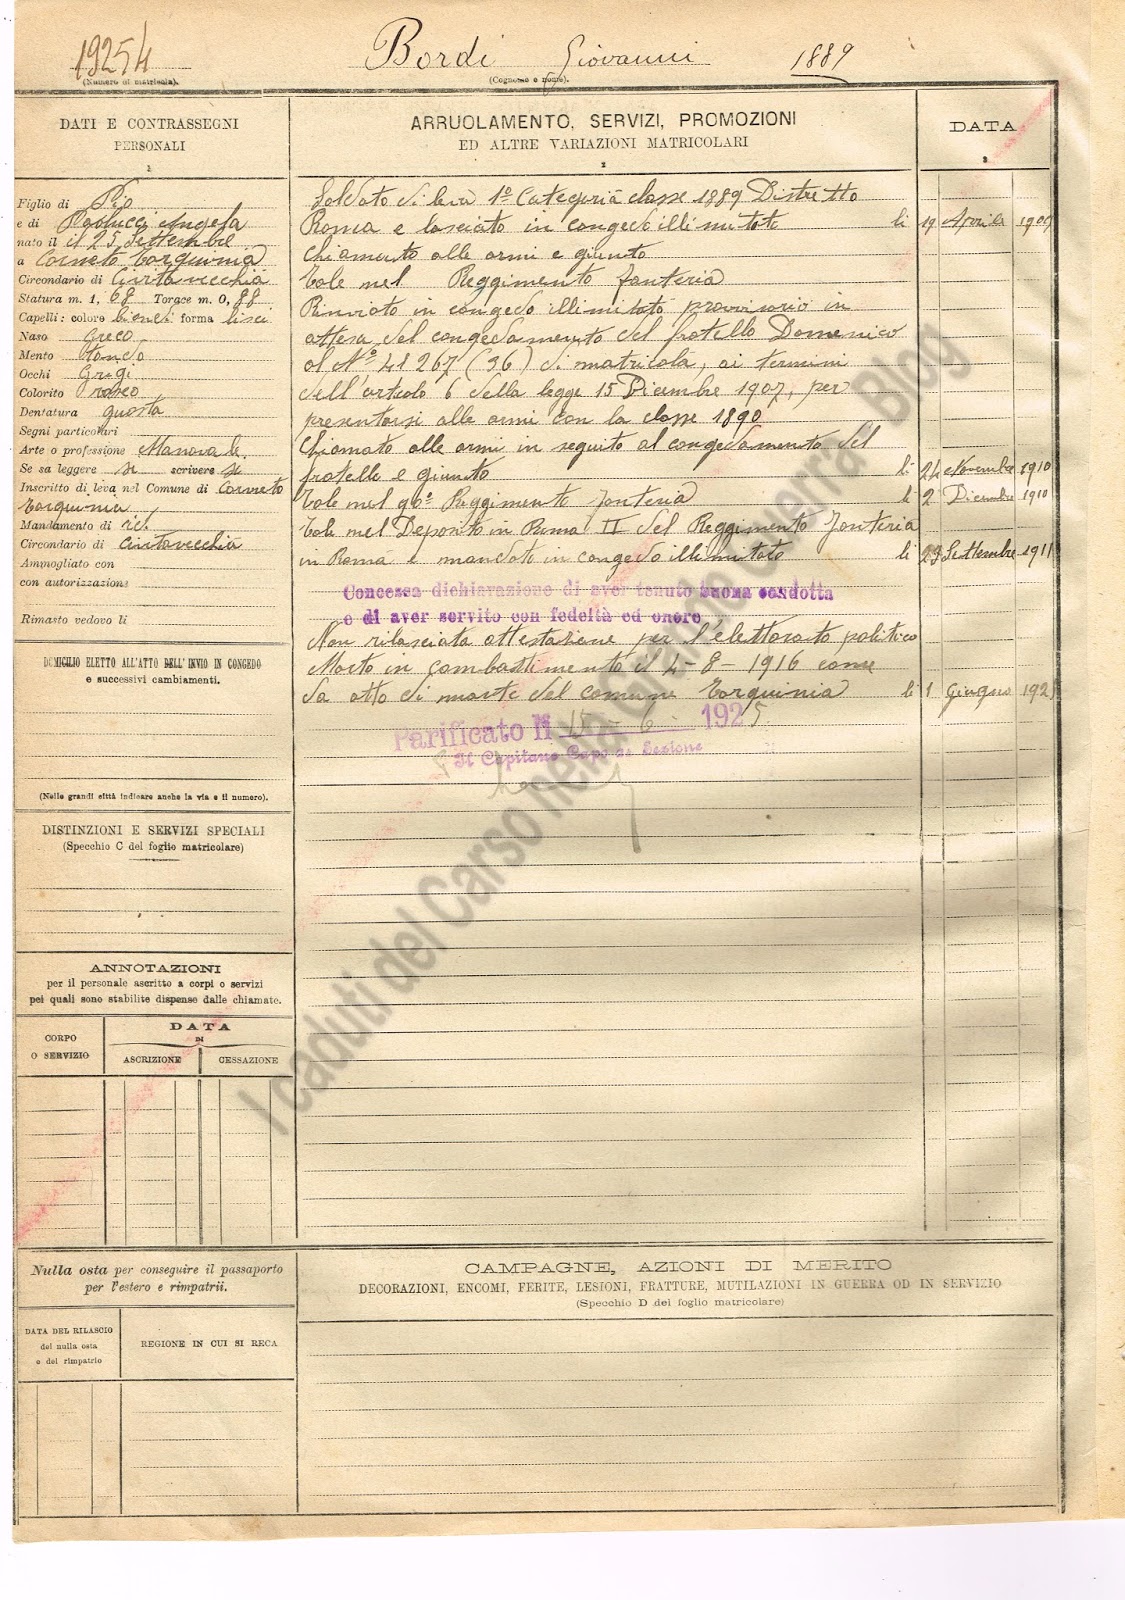 19254
Bordi Giovanni 1889
(Numero di matricola).
(Cognome e nome).
DATI E CONTRASSEGNI
PERSONALI
1
Figlio di Pio
e di Paolucci Angela
nato il il 25 Settembre
a Corneto Tarquinia
Circondario di Civitavecchia
Statura m. 1, 68 Torace m. 0, 88
Capelli: colore biondi forma lisci
Naso Greco
Mento tondo
Occhi Grigi
Colorito roseo
Dentatura guasta
Segni particolari
Arte o professione Manovale
Se sa leggere si scrivere si
Inscritto di leva nel Comune di Corneto
Tarquinia
Mandamento di id.
Circondario di Civitavecchia
Ammogliato con
con autorizzazione
Rimasto vedovo li
DOMICILIO ELETTO ALL'ATTO DELL'INVIO IN CONGEDO
e successivi cambiamenti.
(Nelle grandi città indicare anche la via e il numero).
DISTINZIONI E SERVIZI SPECIALI
(Specchio C del foglio matricolare)
ANNOTAZIONI
per il personale ascritto a corpi o servizi
pei quali sono stabilite dispense dalle chiamate.
CORPO
O SERVIZIO
DATA
DI
ASCRIZIONE
CESSAZIONE
Nulla osta per conseguire il passaporto
per l'estero e rimpatrii.
DATA DEL RILASCIO
del nulla osta
e del rimpatrio
REGIONE IN CUI SI RECA
ARRUOLAMENTO, SERVIZI, PROMOZIONI
ED ALTRE VARIAZIONI MATRICOLARI
2
DATA
3
Soldato di leva 1ª Categoria classe 1889 Distretto
Roma e lasciato in congedo illimitato li 19 Aprile 1909
Chiamato alle armi e giunto
Tale nel Reggimento fanteria
Rinviato in congedo illimitato provvisorio in
attesa del congedamento del fratello Domenico
al Nº 41267 (36) di matricola, ai termini
dell'articolo 6 della legge 15 Dicembre 1907, per
presentarsi alle armi con la classe 1890
Chiamato alle armi in seguito al congedamento del
fratello e giunto li 24 Novembre 1910
Tale nel 90º Reggimento Fanteria li 2 Dicembre 1910
Tale nel Deposito in Roma II del Reggimento Fanteria
in Roma e mandato in congedo illimitato li 23 Settembre 1911
Concessa dichiarazione di aver tenuto buona condotta
e di aver servito con fedeltà ed onore
Non rilasciata attestazione per l'elettorato politico
Morto in combattimento il 4-8-1916 come
da atto di morte del comune Tarquinia li 1 Giugno 192
Parificato li 15 - 6 - 1925
Il Capitano Capo de Sezione
CAMPAGNE, AZIONI DI MERITO
DECORAZIONI, ENCOMI, FERITE, LESIONI, FRATTURE, MUTILAZIONI IN GUERRA OD IN SERVIZIO
(Specchio D del foglio matricolare)
I caduti del Carso nella Grande Guerra blog